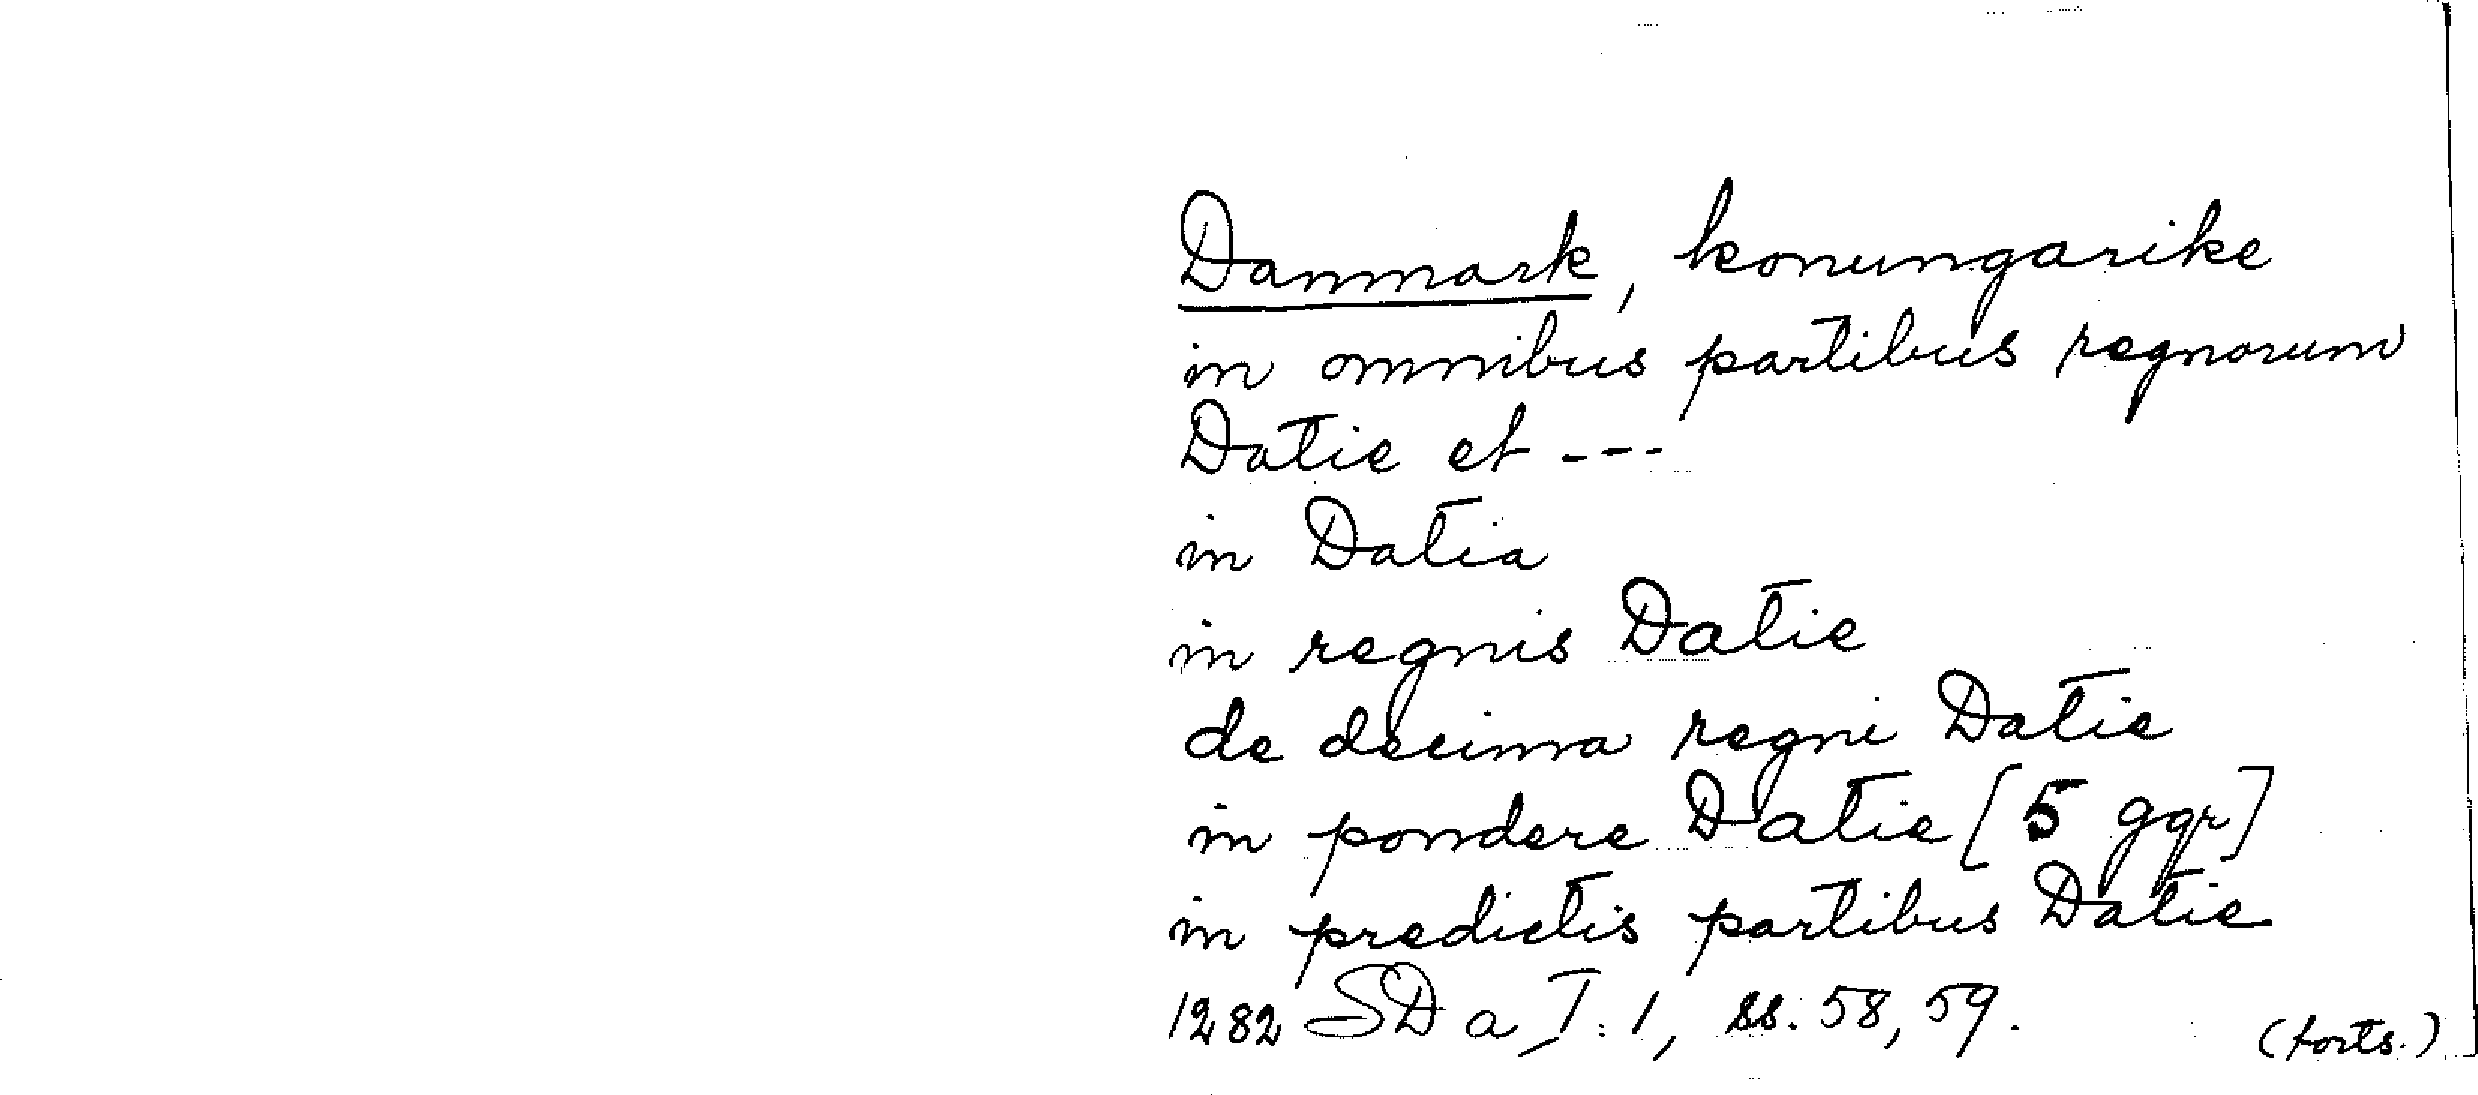 Danmark, konungarike
in omnibus partibus regnorum
Datie et ---
in Datia
in regnis Datie
de decima regni Datie
in pondere Datie [5 ggr]
in predictis partibus Datie
1282 SD a I:1, ss. 58, 59.
(forts.)